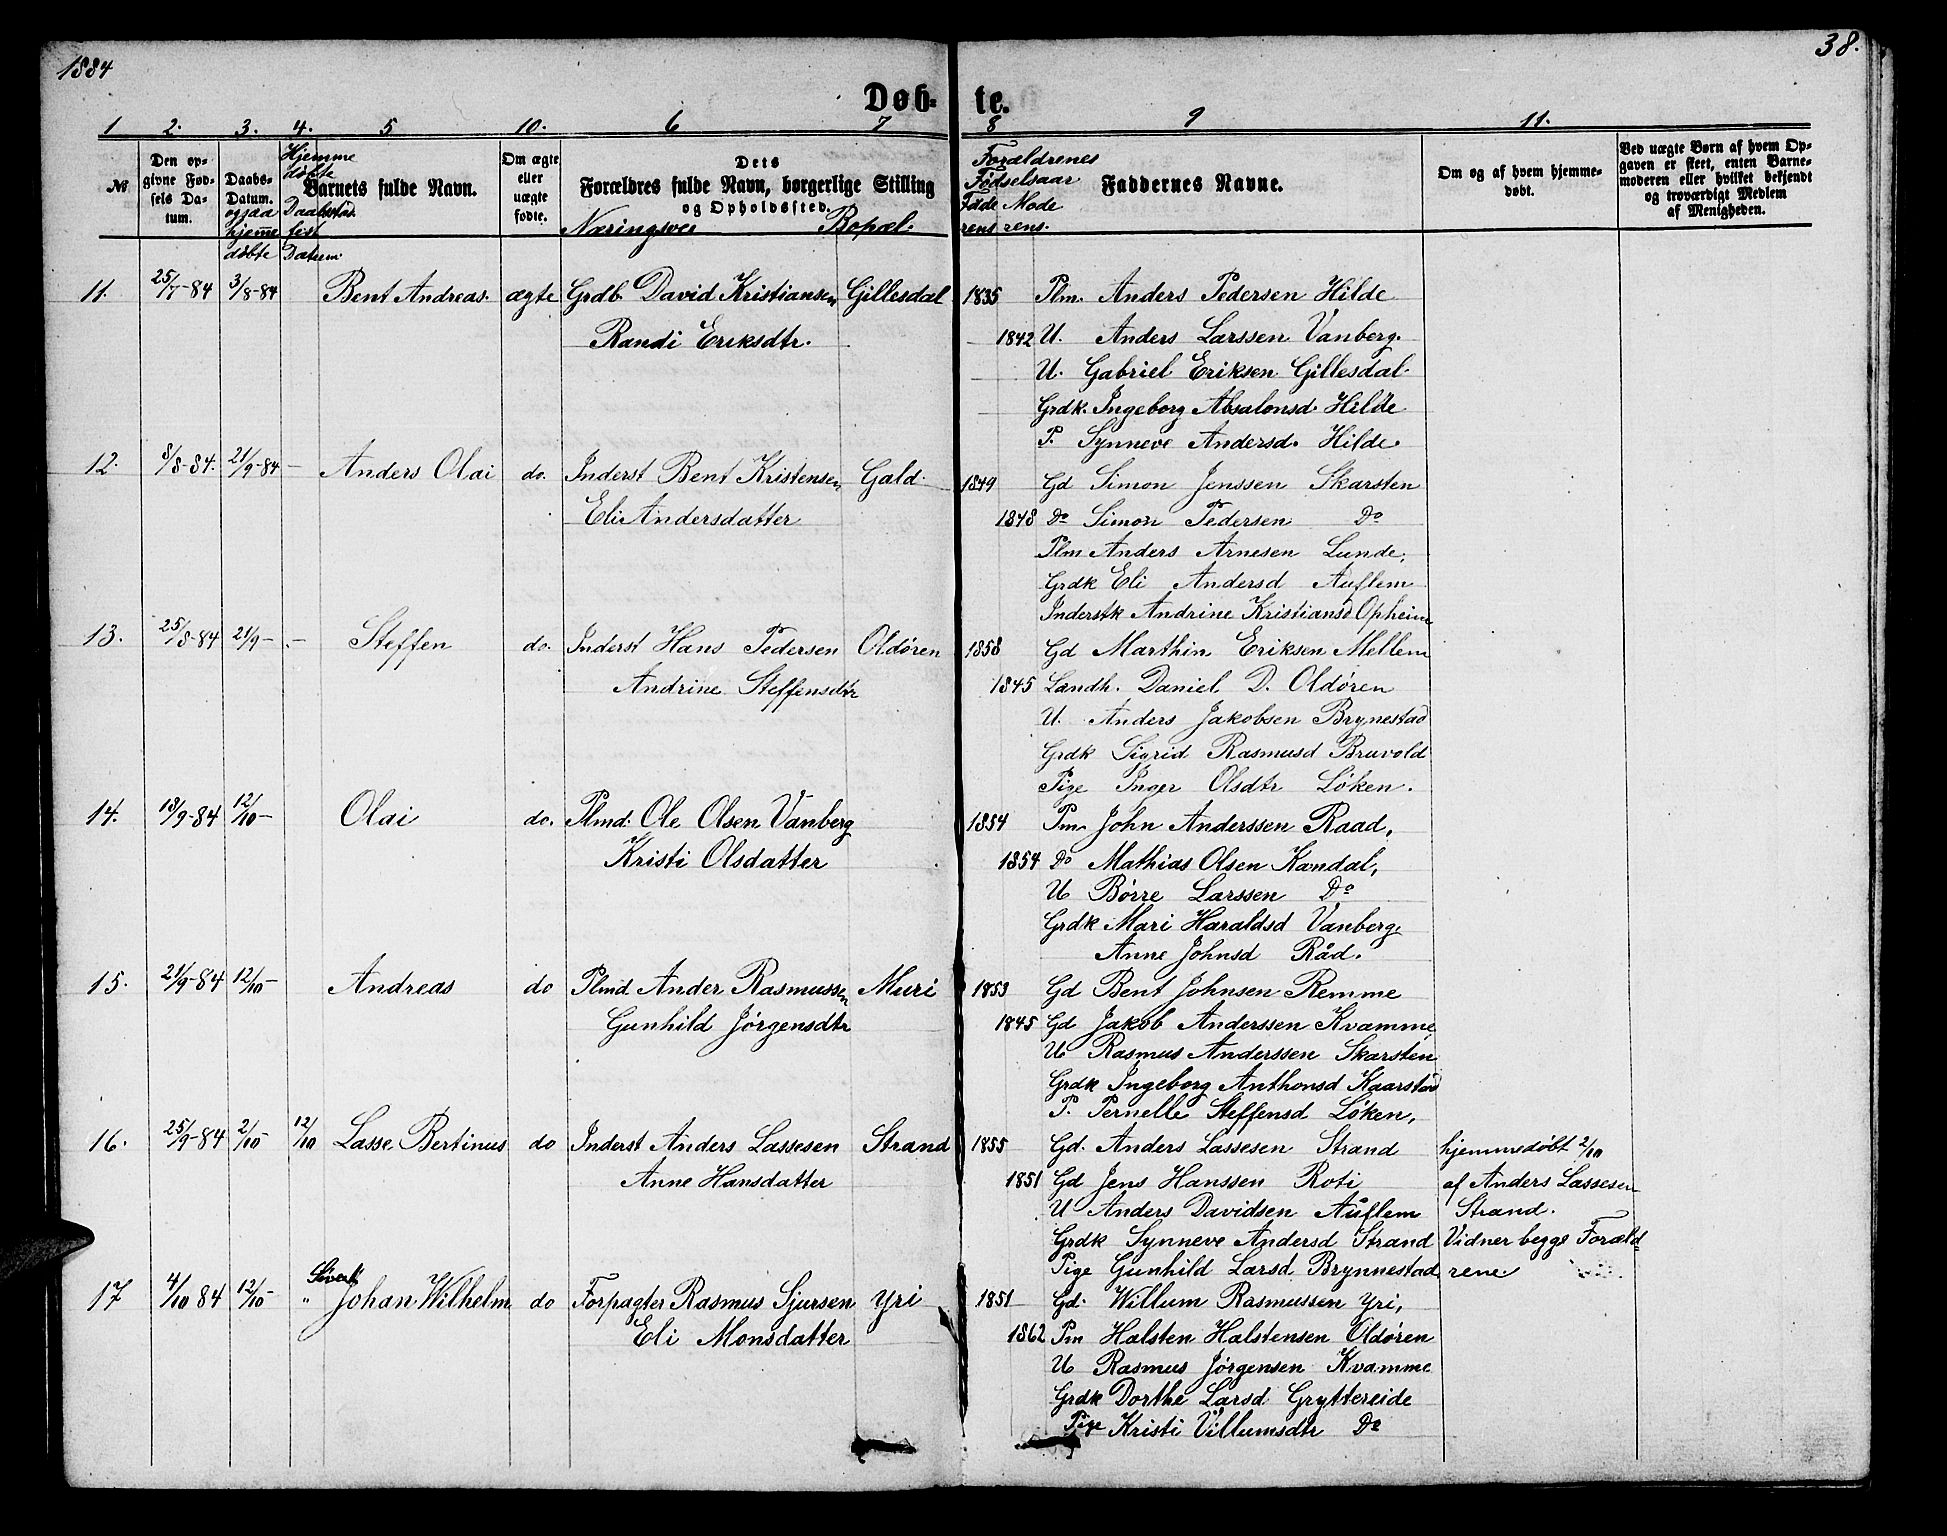 1884
38.
Døb- te.
1 2. 3. 4. 5 10. 6 7 8 9 11.
№
Den op-
givne Fød-
sels Da-
tum.
Daabs-
Datum.
ogsaa
hjeme
døbte
Hjemme
døbte
Daabstad
fest
Datum.
Barnets fulde Navn.
Om ægte
eller
uægte
fødte.
Dets
Forældres fulde Navn, borgerlige Stilling
og Opholdssted.
Næringsvei Bopæl.
Forældrenes
Fødselsaar
Fade Mode
rens rens.
Faddernes Navne.
Om og af hvem hjemme-
døbt.
Ved uægte Børn af hvem Op-
gaven er skeet, enten Barne-
moderen eller hvilket bekjendt
og troværdigt Medlem
af Menigheden.
11. 25/7-84 3/8-84 Bent Andreas. ægte Grdb. David Kristiansen Gillesdal 1835 Plm. Anders Pedersen Hilde
Randi Eriksdtr. 1842 U. Anders Larssen Vanberg.
U. Gabriel Eriksen Gillesdal.
Grdk. Ingeborg Absalonsd. Hilde
P. Synneve Andersd. Hilde.
12. 8/8-84. 21/9-84 - Anders Olai do. Inderst Bent Kristensen Gald. 1849 Gd Simon Jenssen Skarsten
Eli Andersdatter 1848 Do Simon Pedersen Do
Plm Anders Arnesen Lunde.
Grdk Eli Andersd Auflem
Inderstk Andrine Kristiansd Opheim
13. 25/8-84 21/9- - Steffen do. Inderst Hans Pedersen Oldøren 1858 Gd Marthin Eriksen Mellem
Andrine Steffensdtr 1845 Landh. Daniel D. Oldøren
U. Anders Jakobsen Brynestad
Grdk Sigrid Rasmusd Bruvold
Pige Inger Olsdtr Løken.
14. 18/9-84 12/10- Olai do. Plmd. Ole Olsen Vanberg 1854 Pm. John Anderssen Raad,
Kristi Olsdatter 1854 Do Mathias Olsen Kandal,
U Børre Larssen Do
Grdk Mari Haraldsd Vanberg.
Anne Johnsd Råd.
15. 21/9-84 12/10- Andreas do Plmd. Ander Rasmussen Muri 1853 Gd Bent Johnsen Remme
Gunhild Jørgensdtr 1845 Gd Jakob Anderssen Kvamme,
U Rasmus Anderssen Skarsten
Grdk Ingeborg Anthonsd Kaarstad
P. Pernelle Steffensd Løken,
16. 25/9-84 2/10- 12/10 Lasse Bertinus do Inderst Anders Lassesen Strand 1855 Gd. Anders Lassesen Strand hjemmedøbt 2/10
Anne Hansdatter 1851 Gd Jens Hanssen Roti af Anders Lassesen
U Anders Davidsen Auflem Strand.
Grdk Synneve Andersd Strand Vidner begge Foræld-
Pige Gunhild Larsd. Brynnestad rene.
Sivert
17 4/10 84 12/10- " Johan Wilhelm do Forpagter Rasmus Sjursen Yri 1851 Gd. Willum Rasmussen Yri,
Eli Monsdatter 1862 Pm Halsten Halstensen Oldøren
U Rasmus Jørgensen Kvamme
Grdk Dorthe Larsd Gryttereide
Pige Kristi Villumsdtr Do